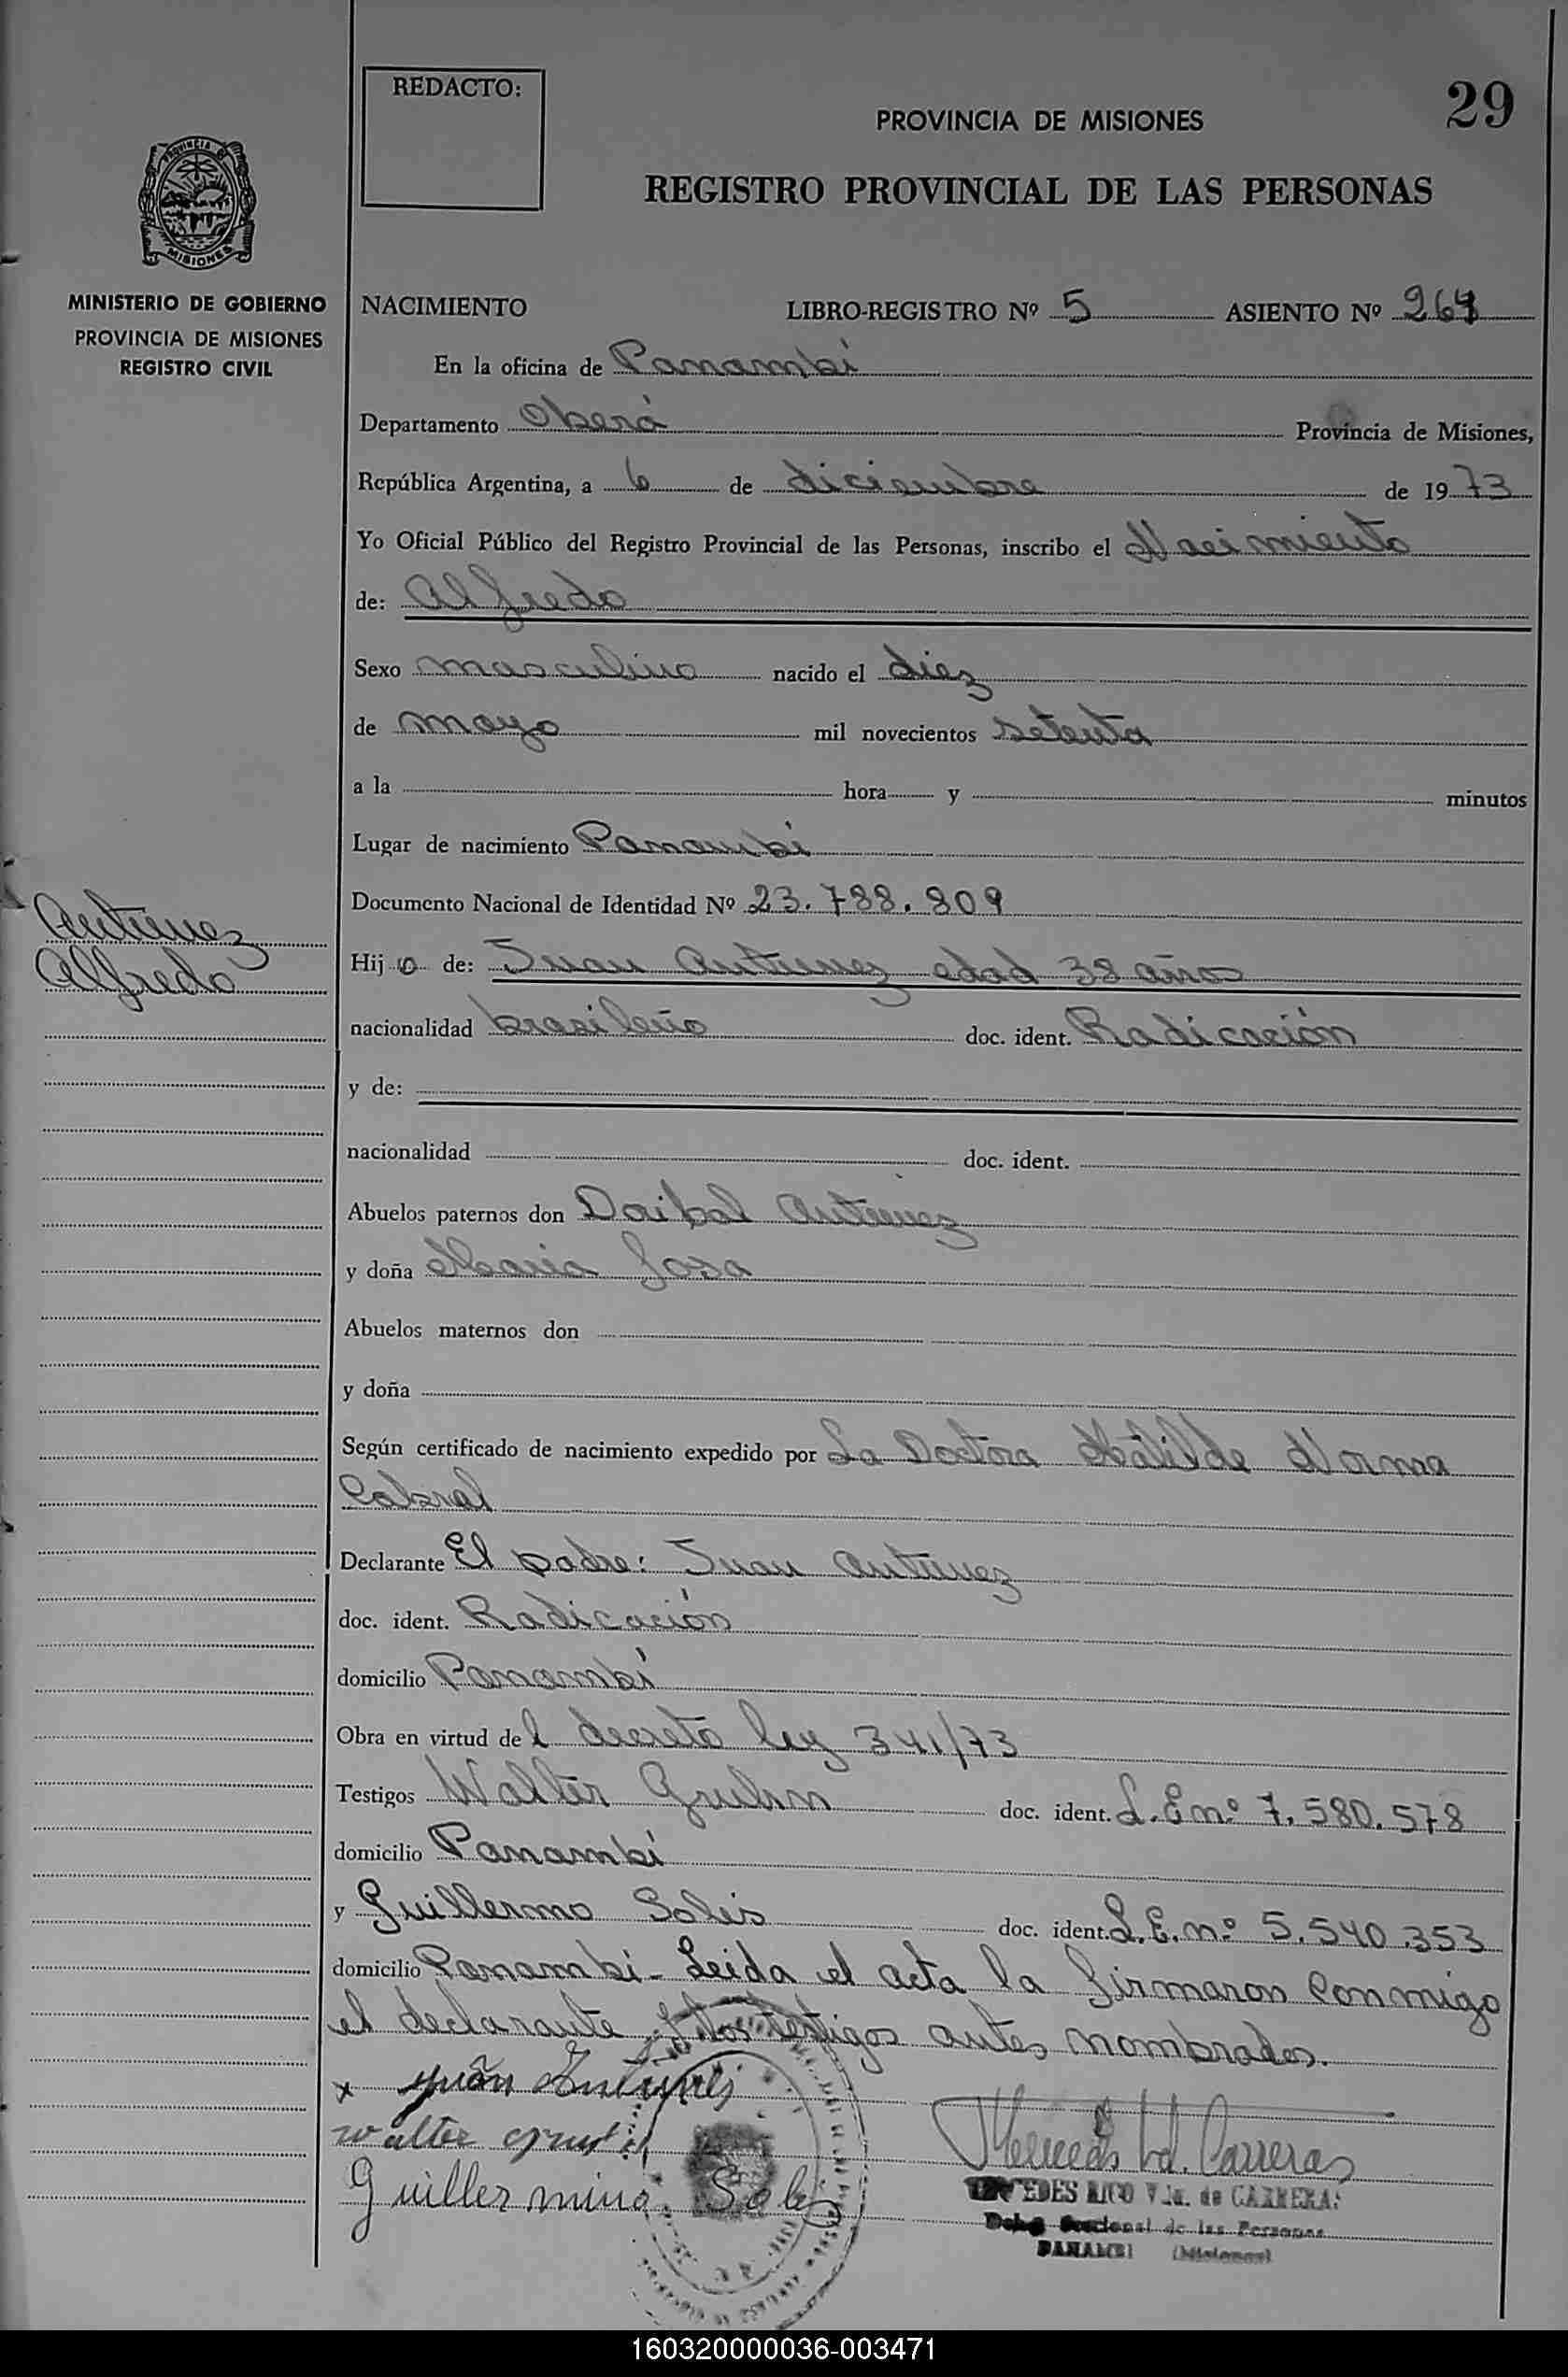 REDACTO:
29
PROVINCIA DE MISIONES
REGISTRO PROVINCIAL DE LAS PERSONAS
PROVINCIA DE
MISIONES
MINISTERIO DE GOBIERNO
PROVINCIA DE MISIONES
REGISTRO CIVIL
NACIMIENTO LIBRO-REGISTRO Nº 5 ASIENTO Nº 264
En la oficina de Panambí
Departamento Oberá Provincia de Misiones,
República Argentina, a 6 de diciembre de 1973
Yo Oficial Público del Registro Provincial de las Personas, inscribo el Nacimiento
de: Alfredo
Sexo masculino nacido el diez
de mayo mil novecientos setenta
a la hora y minutos
Lugar de nacimiento Panambí
Documento Nacional de Identidad Nº 23.788.809
Antunez
Alfredo
Hijo de: Juan Antunez edad 38 años
nacionalidad brasileño doc. ident. Radicación
y de:
nacionalidad doc. ident.
Abuelos paternos don Doibal Antunez
y doña Maria Josa
Abuelos maternos don
y doña
Según certificado de nacimiento expedido por La Doctora Matilde Norma
Cabral
Declarante El padre: Juan Antunez
doc. ident. Radicación
domicilio Panambí
Obra en virtud del decreto ley 341/73
Testigos Walter Gruhn doc. ident. L.E nº 7.580.578
domicilio Panambí
y Guillermo Solis doc. ident. L.E. nº 5.540.353
domicilio Panambí - Leida el acta la firmaron conmigo
el declarante y los testigos antes nombrados.
x Juãn Antunes
walter
Guillermino Solis
Mercedes Vd. Carreras
MERCEDES RICO Vda. de CARRERAS
Deleg. Seccional de las Personas
PANAMBI (Misiones)
160320000036-003471